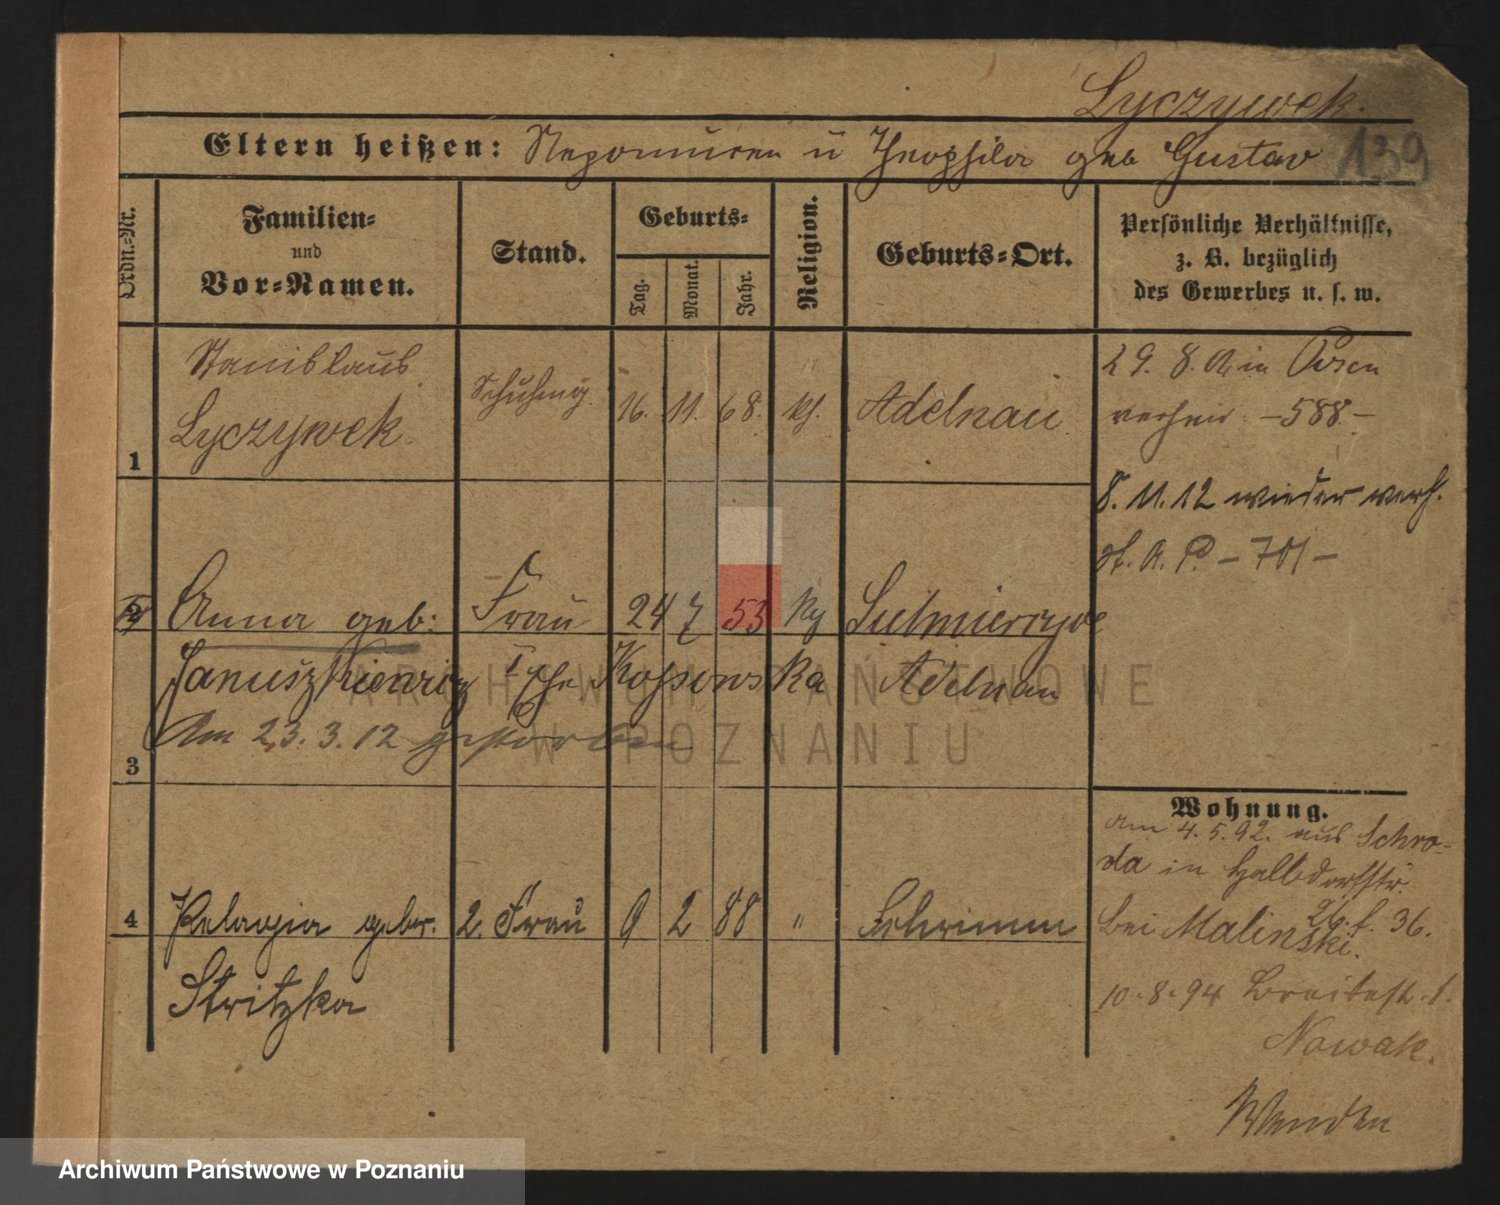 Lyczywek.
Eltern heißen: Nepomucen u Theophila geb Gustav 139
Ordn.-Nr.
Familien-
und
Vor-Namen.
Stand.
Geburts-
Tag.
Monat.
Jahr.
Religion.
Geburts-Ort.
Persönliche Verhältnisse,
z. B. bezüglich
des Gewerbes u. s. w.
1 Stanislaus
Lyczywek. Schuhmg. 16. 11. 68. kh. Adelnau
29. 8. in Posen
verheir. -588-
8. 11. 12 wieder verh.
St. A. P. -701-
2 Anna geb: Frau 24 7 53 Sulmierzyce
Januszkiewicz I Ehe Kossowska Adelnau
Am 23.3.12 gestorben
3
4 Pelagia gebr. 2. Frau 9 2 88 " Schrimm
Stritzka
Wohnung.
Am 4.5.92. aus Schro-
da in Halbdorfstr.
26. 36.
bei Malinski.
10.8.94 Breitestr. 1.
Nowak.
Wenden
ARCHIWUM PAŃSTWOWE
W POZNANIU
Archiwum Państwowe w Poznaniu